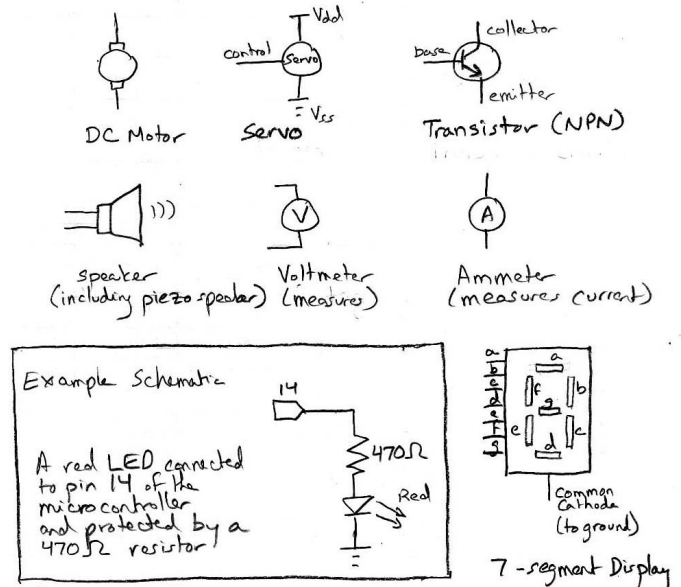 Vdd
control
Servo
Vss
DC Motor
Servo
collector
base
emitter
Transistor (NPN)
speaker
(including piezo speaker)
V
Voltmeter
(measures)
A
Ammeter
(measures current)
Example Schematic
14
470Ω
Red
A red LED connected
to pin 14 of the
microcontroller
and protected by a
470Ω resistor
a
b
c
d
e
f
g
a
f
b
g
e
c
d
Common
Cathode
(to ground)
7-segment Display